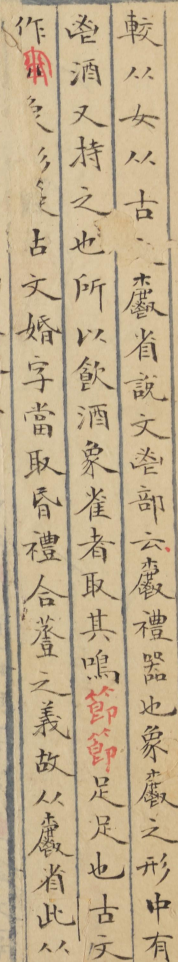 較从女从古𩰥省說文鬯部云𩰥禮器也象𩰥之形中有
鬯酒又持之也所以飲酒象雀者取其鳴節節足足也古文
作古文婚字當取昏禮合巹之義故从𩰥省此从